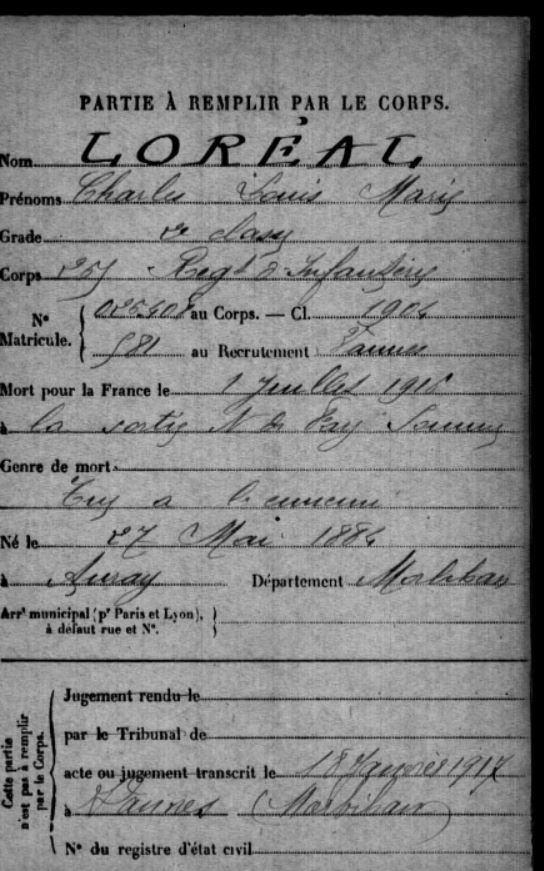 PARTIE À REMPLIR PAR LE CORPS.
Nom LORÉAL
Prénoms Charles Louis Marie
Grade 2e classe
Corps 257 Regt d'Infanterie
N° Matricule. { au Corps. — Cl. 1904
581 au Recrutement Vannes
Mort pour la France le 1 Juillet 1916
à la sortie N de Fay Somme
Genre de mort
Tué a l'ennemi
Né le 27 Mai 1884
à Auray Département Morbihan
Arrt municipal (pr Paris et Lyon), à défaut rue et N°. }
Cette partie n'est pas à remplir par le Corps.
Jugement rendu le
par le Tribunal de
acte ou jugement transcrit le 18 Janvier 1917
à Vannes (Morbihan)
N° du registre d'état civil